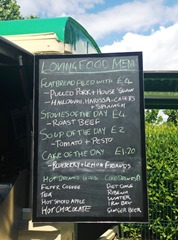 LOVING FOOD MENU
FLATBREAD FILLED WITH £4
- PULLED PORK + HOUSE SLAW
- HALLOUMI, HARISSA, CAPERS
+ SPINACH
STOTTIES OF THE DAY £4
- ROAST BEEF
SOUP OF THE DAY £2
- TOMATO + PESTO
CAKE OF THE DAY £1.20
- BLUEBERRY + LEMON
HOT DRINKS COLD DRINKS £1
FILTER COFFEE DIET COKE
TEA RIBENA
HOT SPICED APPLE WATER
HOT CHOCOLATE IRN BRU
GINGER BEER